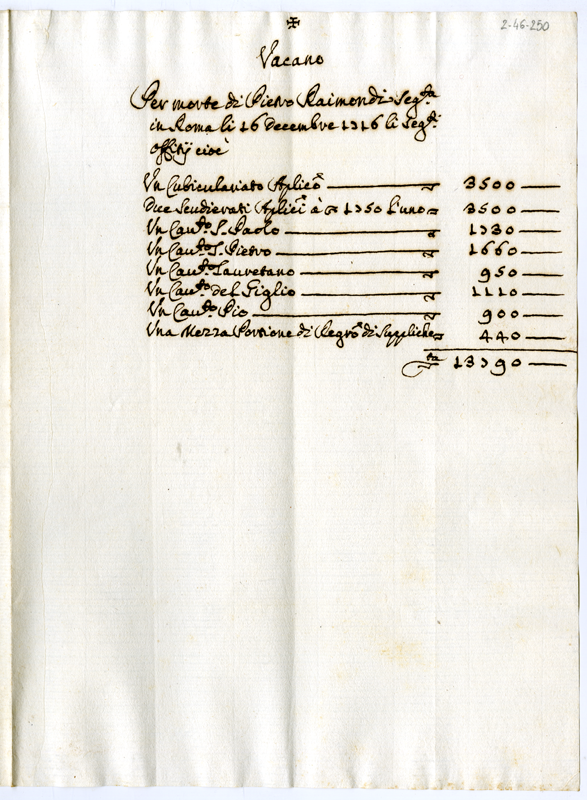 2-46-250
✠
Vacano
Per morte di Pietro Raimondi Seg.ta
in Roma li 16 Decembre 1716 li Seg.ti
Offitij cioè
Un Cubiculariato Aplico — 3500 —
Due Scudierati Aplici à 1750 l'uno 3500 —
Un Cau.to S. Paolo — 1730 —
Un Cau.to S. Pietro — 1660 —
Un Cau.to Lauretano — 950 —
Un Cau.to del Giglio — 1110 —
Un Cau.to Pio — 900 —
Una Mezza Portione di Regro di Suppliche 440 —
13790 —